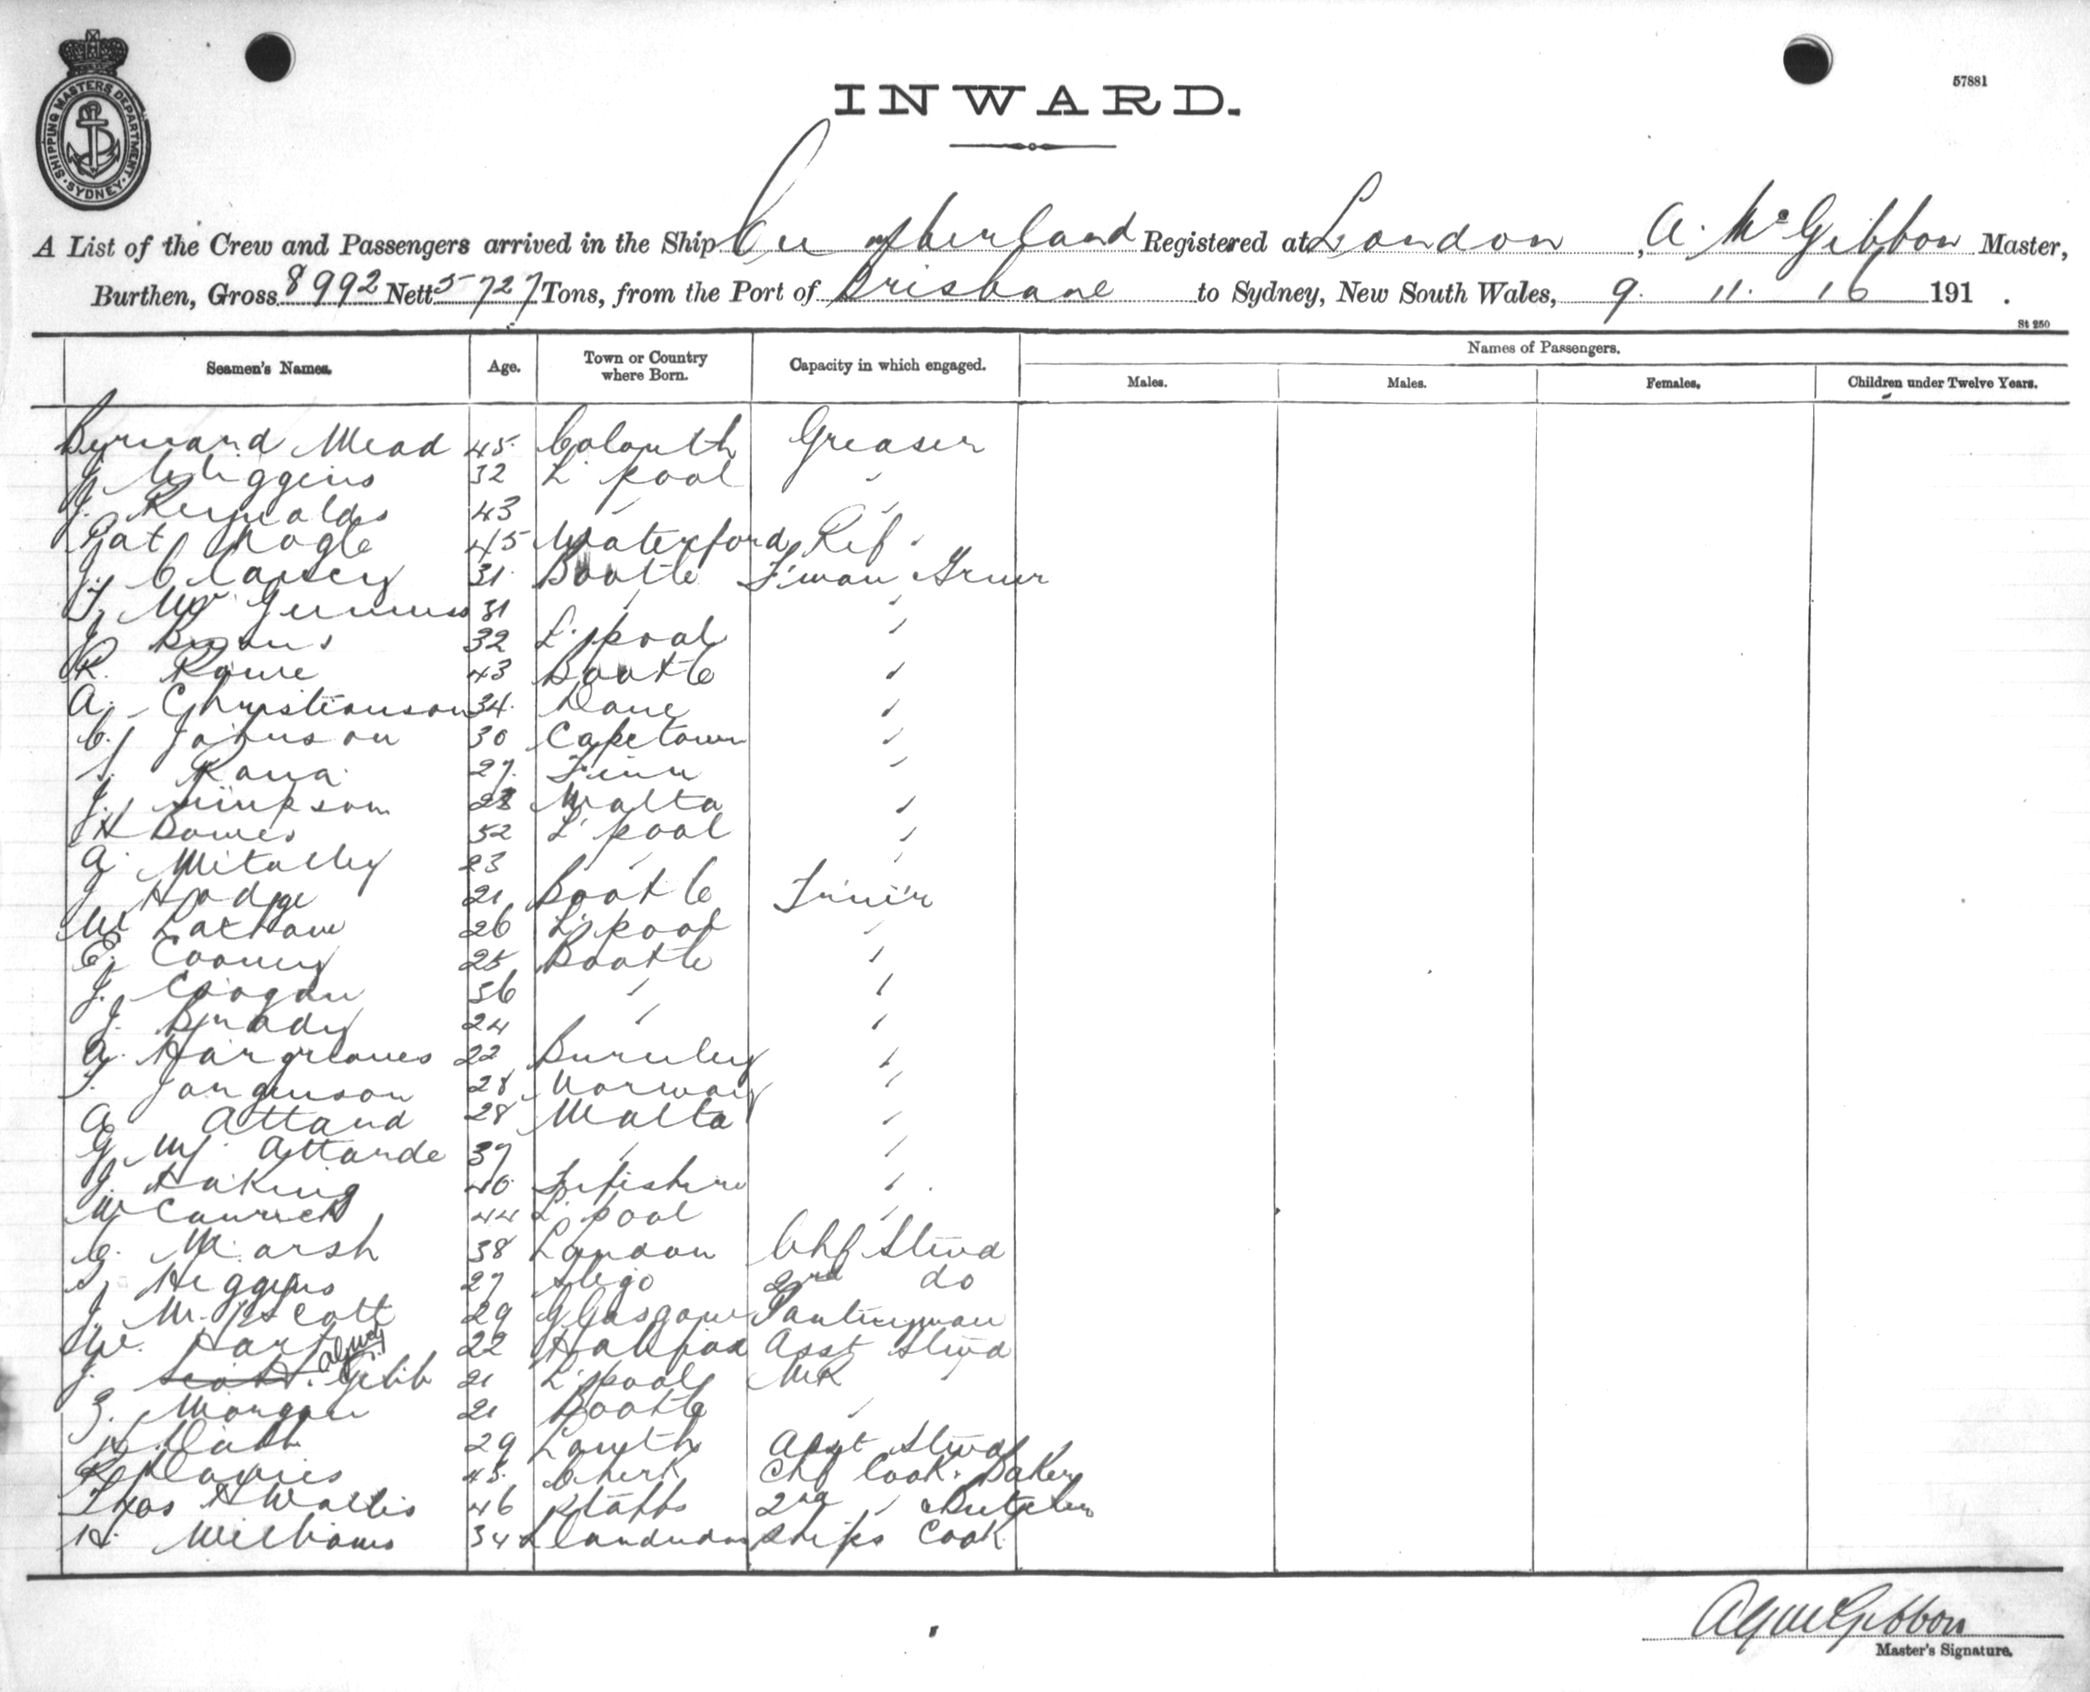 SHIPPING MASTERS DEPARTMENT. SYDNEY.
57881
INWARD.
A List of the Crew and Passengers arrived in the Ship Cumberland Registered at London, A. McGibbon Master,
Burthen, Gross 8992 Nett 5727 Tons, from the Port of Brisbane to Sydney, New South Wales, 9. 11. 16 191 .
St 250
Seamen's Names. Age. Town or Country where Born. Capacity in which engaged. Names of Passengers.
Males. Males. Females. Children under Twelve Years.
Bernard Mead 45 Greaser
J. Higgins 32 L'pool "
J. Reynolds 43 " "
Pat Nagle 45 Waterford Ref "
J. 31 Bootle F'man
T. McGuinness 31 " "
J. 32 L'pool "
R. Rowe 43 Bootle "
A. Christianson 34 Dane "
C. Johnson 30 Capetown "
27 Finn "
J. Simpson 28 Malta "
H Bowes 52 L'pool "
A. 23 " "
J Hodge 21 Bootle Trim'r
W Latham 26 L'pool "
E. Cooney 25 Bootle "
J. 36 " "
J. Brady 24 " "
A. Hargreaves 22 Burnley "
T. Jorgenson 28 Norway "
A Attard 28 Malta "
G. M. Attarde 37 " "
J. Haking 40 "
W 44 L'pool "
C. Marsh 38 London Chf Stwd
T. Higgins 27 Sligo 2nd do
J. M. Scott 29 Glasgow Pantryman
W. Hart 22 Halifax Asst Stwd
J. Scott. Gibb 21 L'pool MR
Morgan 21 Bootle "
H 29 Louth Asst Stwd
R Davies 45 Chirk Chf Cook. Baker
Thos H Wallis 46 Staffs 2nd " Butcher
H. Williams 34 Llandudno Ships Cook
A G McGibbon
Master's Signature.